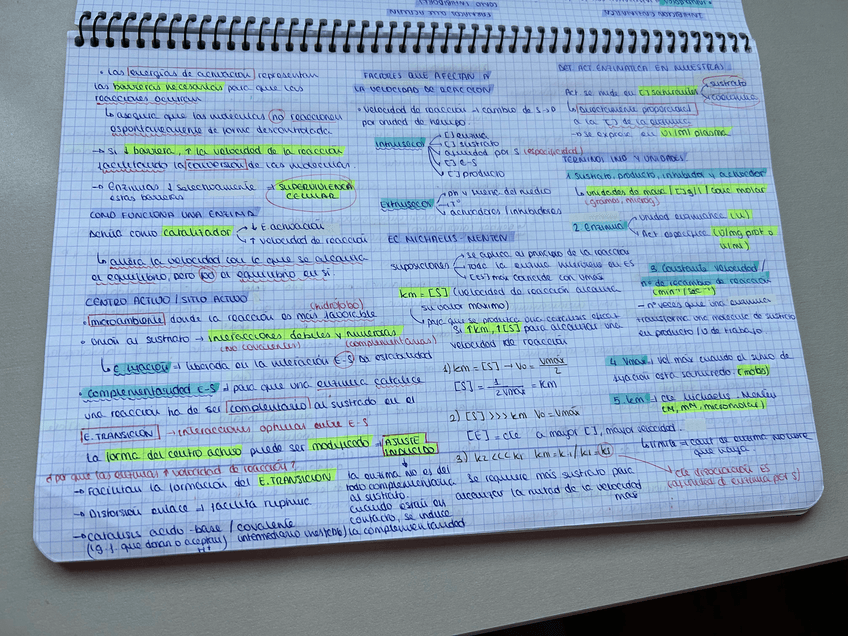 • Las energías de activación representan
las barreras necesarias para que las
reacciones ocurran
↳ asegura que las moléculas no reaccionen
espontáneamente de forma descontrolada
→ Si ↓ barrera, ↑ la velocidad de la reacción
facilitando la conversión de las moléculas.
→ Enzimas ↓ selectivamente → SUPERVIVENCIA
estas barreras CELULAR
COMO FUNCIONA UNA ENZIMA
Actúa como catalizador ↓ E activación
↑ velocidad de reacción
↳ altera la velocidad con la que se alcanza
el equilibrio, pero no el equilibrio en sí
CENTRO ACTIVO / SITIO ACTIVO
(hidrófobo)
• microambiente donde la reacción es más favorable
• Unión al sustrato → interacciones débiles y numerosas
(no covalentes) (complementarias)
↳ E unión → liberada en la interacción E-S da estabilidad
• complementariedad E-S → para que una enzima catalice
una reacción ha de ser complementario al sustrato en el
E.TRANSICIÓN → interacciones óptimas entre E-S
La forma del centro activo puede ser modificado → AJUSTE
INDUCIDO
¿Por qué las enzimas ↑ velocidad de reacción?
→ Facilitan la formación del E.TRANSICION
→ Distorsión enlace → facilita ruptura
→ Catálisis ácido-base / covalente
(1g.f. que donan o aceptan H+) intermediario inestable)
la enzima no es del
todo complementaria
al sustrato.
cuando están en
contacto, se induce
la complementariedad
FACTORES QUE AFECTAN A
LA VELOCIDAD DE REACCIÓN
• velocidad de reacción → cambio de S → P
por unidad de tiempo.
Intrínseco
[] enzima
[] sustrato
afinidad por S (especificidad)
[] E-S
[] producto
Extrínseco
pH y fuerz. del medio
Tª
activadores / inhibidores
EC MICHAELIS-MENTEN
suposiciones
se aplica al principio de la reacción
toda la enzima interviene en ES
[ES] max coincide con Vmax
km = [S] (velocidad de reacción alcanza
su valor máximo)
para que se produzca una catálisis eficaz
Si ↑km, ↑[S] para alcanzar una
velocidad de reacción
1) km = [S] → Vo = Vmax / 2
[S] = 1 / 2Vmax = km
2) [S] >>> km Vo = Vmax
[E] = cte a mayor [], mayor velocidad.
↳ límite → cant de enzima no libre
que haya.
3) k2 <<< k1 km = k-1/k1 = k1
Se requiere más sustrato para
alcanzar la mitad de la velocidad
max
→ cte disociación ES
(afinidad d enzima por S)
DET ACT ENZIMÁTICA EN MUESTRAS
Act se mide en [] saturantes sustrato
coenzima
↳ directamente proporcional
a la [] de la enzima
↳ se expresa en UI/ml plasma
TERMINOL IND Y UNIDADES
1 sustrato, producto, inhibidor y activador
↳ unidades de masa / []g/l / conc molar
(gramos, microg)
2 Enzima
unidad enzimática (U)
Act específica (U/mg prot o
U/ml)
3 Constante velocidad /
nº de recambio de reacción
(min⁻¹ / sec⁻¹)
→ nº veces que una enzima
transforma una molécula de sustrato
en producto / U de trabajo
4 Vmax → vel máx cuando el sitio de
fijación está saturado (mobs)
5. km → cte Michaelis-Menten
(M, mM, micromolar)